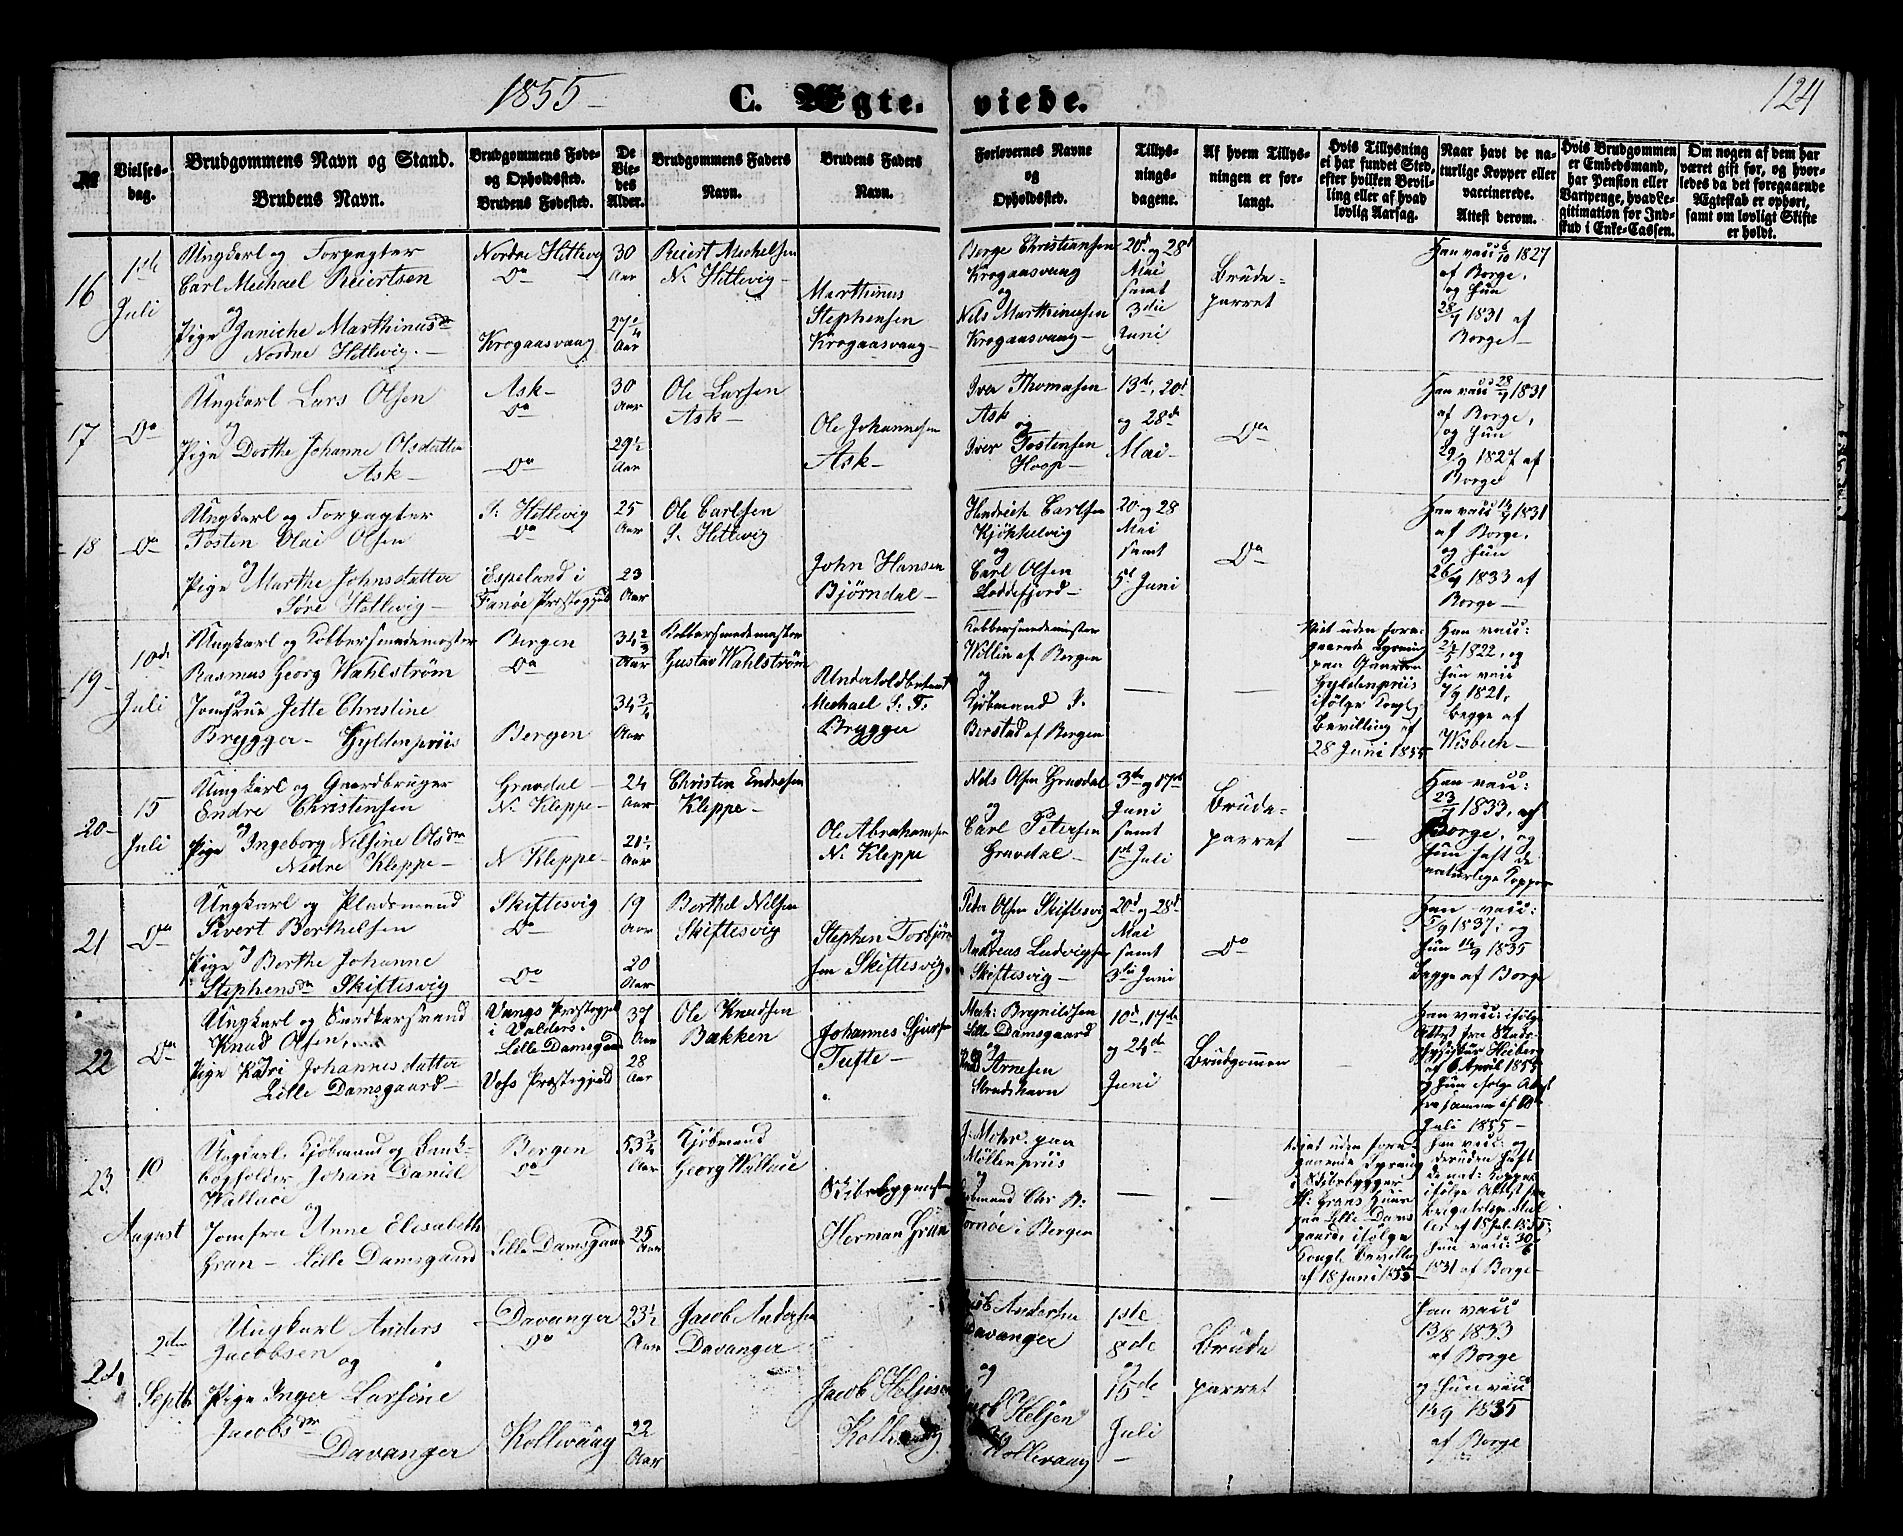 1855
C. Ægte. viede.
124
№
Vielses-
dag.
Brudgommens Navn og Stand.
Brudens Navn.
Brudgommens Føde-
og Opholdssted.
Brudens Fødested.
De
Vie-
des
Alder.
Brudgommens Faders
Navn.
Brudens Faders
Navn.
Forlovernes Navne
og
Opholdssted.
Tillys-
nings-
dagene.
Af hvem Tillys-
ningen er for-
langt.
Hvis Tillysning
ei har fundet Sted,
efter hvilken Bevil-
ling eller af hvad
lovlig Aarsag.
Naar havt de na-
turlige Kopper eller
vaccinerede.
Attest derom.
Hvis Brudgommen
er Embedsmand,
har Pension eller
Vartpenge, hvad Le-
gitimation for Ind-
skud i Enke-Cassen.
Om nogen af dem har
været gift før, og hvor-
ledes da det foregaaende
Ægteskab er ophørt,
samt om lovligt Skifte
er holdt.
16
1ste
Juli
Ungkarl og Forpagter
Carl Mechael Reiertsen
og
Pige Janiche Marthinusdr
Nordre Hetlevig.
Nordre Hetlevig
Do
Krogaasvaag
30
Aar
27 1/4
Aar
Reiert Mechelsen
N. Hetlevig
Marthinus
Stephensen
Krogaasvaag
Børge Christiansen
Krogaasvaag
og
Nils Marthinussen
Krogaasvaag
20de og 28d
Mai
samt
3die
Juni
Brude-
parret
Han vacc 6/10 1827
af Borge,
og hun
28/9 1831 af
Borge
17
Do
Ungkarl Lars Olsen
og
Pige Dorthe Johanne Olsdatter
Ask
Ask
Do
Do
30
Aar
29 1/2
Aar
Ole Larsen
Ask
Ole Johannesen
Ask
Iver Thomasen
Ask
og
Iver Tostensen
Hoop
13de, 20d
og 28de
Mai
Do
Han vacc 28/9 1831
af Borge,
og hun
29/9 1827 af
Borge
18
Do
Ungkarl og Forpagter
Tosten Olai Olsen
og
Pige Marthe Johnsdatter
Søre Hetlevig
S. Hetlevig
Do
Espeland i
Fanøe Præstegjæld
25
Aar
23
Aar
Ole Carlsen
S. Hetlevig
John Hansen
Bjørndal
Hendrich Carlsen
Kjøkkelvig
og
Carl Olsen
Loddefjord
20. og 28
Mai
samt
5d Juni
Do
Han vacc 14/9 1831
af Borge,
og hun
26/9 1833 af
Borge
19
10de
Juli
Ungkarl og Kobbersmedemester
Rasmus Georg Wahlstrøm
og
Jomfrue Jette Christine
Brygger Hyldenpriis
Bergen
Do
Bergen
34 2/3
Aar
34 3/4
Aar
Kobbersmedemester
Gustav Wahlstrøm
Mechael S. F.
Brygger
Kobbersmedemester
Willin af Bergen
og
Kjøbmand S.
Berstad af Bergen
Viet uden fore-
gaaende Lysning
paa Gaarden
Hyldenpriis
ifølge Kongl.
Bevilling af
28 Juni 1855
Han vacc:
1822, og
hun vacc
7/9 1821,
begge af
Wisbech
20
15
Juli
Ungkarl og Gaardbruger
Endre Christensen
og
Pige Ingeborg Nilsine Olsdr
Nedre Kleppe
Gravdal
N. Kleppe
N Kleppe
24
Aar
21 1/2
Aar
Christen Endresen
Kleppe
Ole Abrahamsen
N. Kleppe
Nels Olsen Gravdal
og
Carl Petersen
Gravdal
3de og 17de
Juni
samt
1st Juli
Brude-
parret
Han vacc:
1833, af
Borge, og
hun haft de
naturlige Kopper
21
Do
Ungkarl og Pladsmand
Sivert Berthelsen
og
Pige Berthe Johanne
Stephensdr Skiftesvig
Skiftesvig
Do
Do
19
Aar
20
Aar
Berthel Nilsen
Skiftesvig
Stephen Torbjørn
sen Skiftesvig
Peder Olsen Skiftesvig
og
Andreas Ludvigsen
Skiftesvig
20d og 28de
Mai
samt
3die Juni
Do
Han vacc:
5/9 1837, og
hun 14/9 1835
begge af Borge
22
Do
Ungkarl og Snedkersvend
Knud Olsen,
Pige Kari Johannesdatter
Lille Damsgaard
Vangs Præstegjeld
i Valders.
Lille Damsgaard
Vos Præstegjeld
37
Aar
28
Aar
Ole Knudsen
Bækken
Johannes
Tufte
Mech: Brynildsen
Lille Damsgaard
og
Arnesen
Strudshavn
10d, 17de
og 24de
Juni
Brudgommen
Han vacc: ifølge
Attest fra Stads
physikus Heiberg
af 6 April 1855
og hun ifølge Attest
fra samme af 10de
Juli 1855
23
10
August
Ungkarl, Kjøbmand og Bank-
bogholder Johan Daniel
Wallace
og
Jomfru Anne Elisabeth
Gran Lille Damsgaard
Bergen
Do
Lille Damsgaard
53 3/4
Aar
25
Aar
Kjøbmand
Georg Wallace
Skibsbygmester
Herman Gran
J. Mohr paa
Møllenpriis
og
Kjøbmand Chr. B.
Tornøe i Bergen
Viet uden fore-
gaaende Lysning
i Skibsbygger
H: Grans Huus
paa Lille Dams
gaard, ifølge
Kongl. Bevilling
af 18 Juni 1855
Han vacc: og
desuden haft
de nat: Kopper
ifølge Attest fra
Brigadelæge Møl
ler af 15 Juli 1855;
hun vacc: 30/6
1831 af Borge
24
2den
Septb
Ungkarl Anders
Jacobsen
og
Pige Inger Larsine
Jacobsdr
Davanger
Davanger
Do
Kollevaag
23 1/2
Aar
22
Aar
Jacob Andersen
Davanger
Jacob Heljesen
Kollevaag
Jacob Andersen
Davanger
og
Jacob Heljesen
Kollevaag
1ste
8de
og
15de
Juli
Brude
parret
Han vacc
13/8 1833
af Borge
og hun vacc
14/9 1835
af Borge